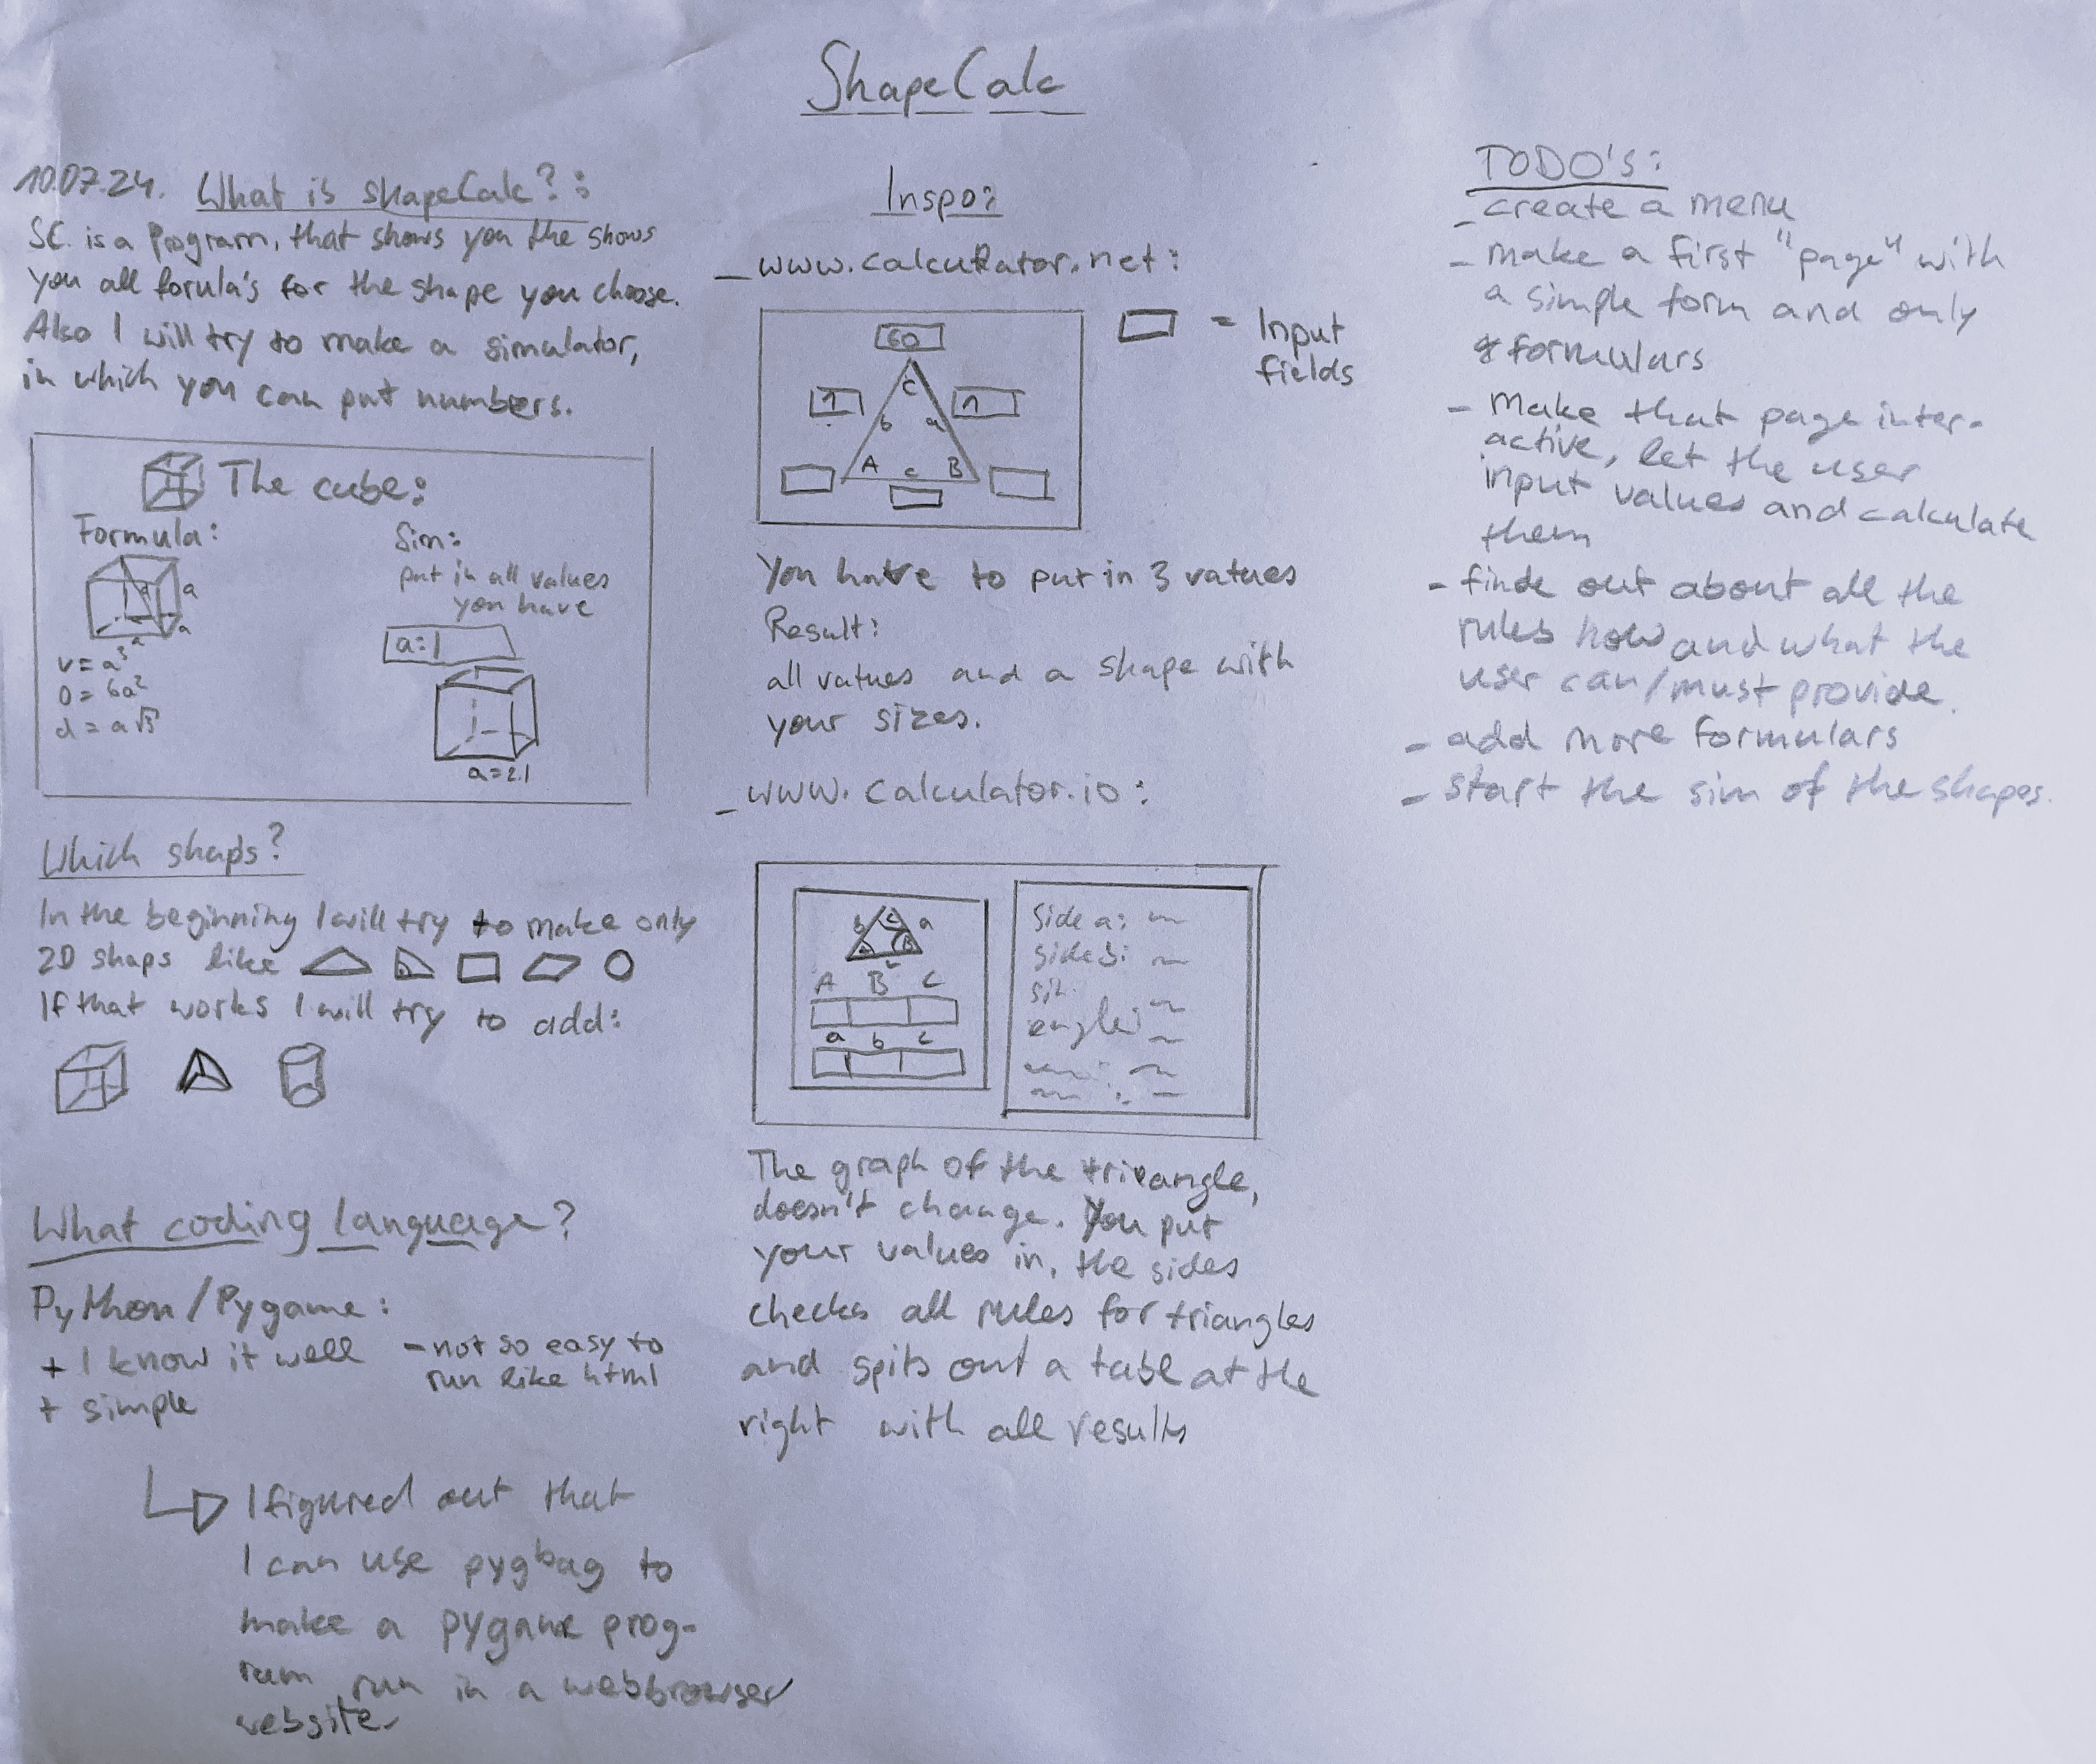 ShapeCalc
10.07.24. What is shapeCalc?:
SC. is a Program, that shows you the shows
you all forula's for the shape you choose.
Also I will try to make a simulator,
in which you can put numbers.
The cube:
Formula:
a
a
a
V = a³
O = 6a²
d = a√3
Sim:
put in all values
you have
a=1
a=2.1
Which shaps?
In the beginning I will try to make only
2D shaps like
If that works I will try to add:
What coding language?
Python/Pygame:
+ I know it well
+ simple
- not so easy to
run like html
I figured out that
I can use pygbag to
make a pygame prog-
ram run in a webbrowser
website
Inspo:
- www.calculator.net:
60
C
1
1
b
a
A
c
B
= Input
fields
You have to put in 3 values
Result:
all values and a shape with
your sizes.
- www.calculator.io:
b
C
a
A B C
a b c
Side a:
side b:
The graph of the triangle,
doesn't change. You put
your values in, the sides
checks all rules for triangles
and spits out a table at the
right with all results
TODO's:
- create a menu
- make a first "page" with
a simple form and only
formulars
- Make that page inter-
active, let the user
input values and calculate
them
- finde out about all the
rules how and what the
user can/must provide.
- add more formulars
- start the sim of the shapes.